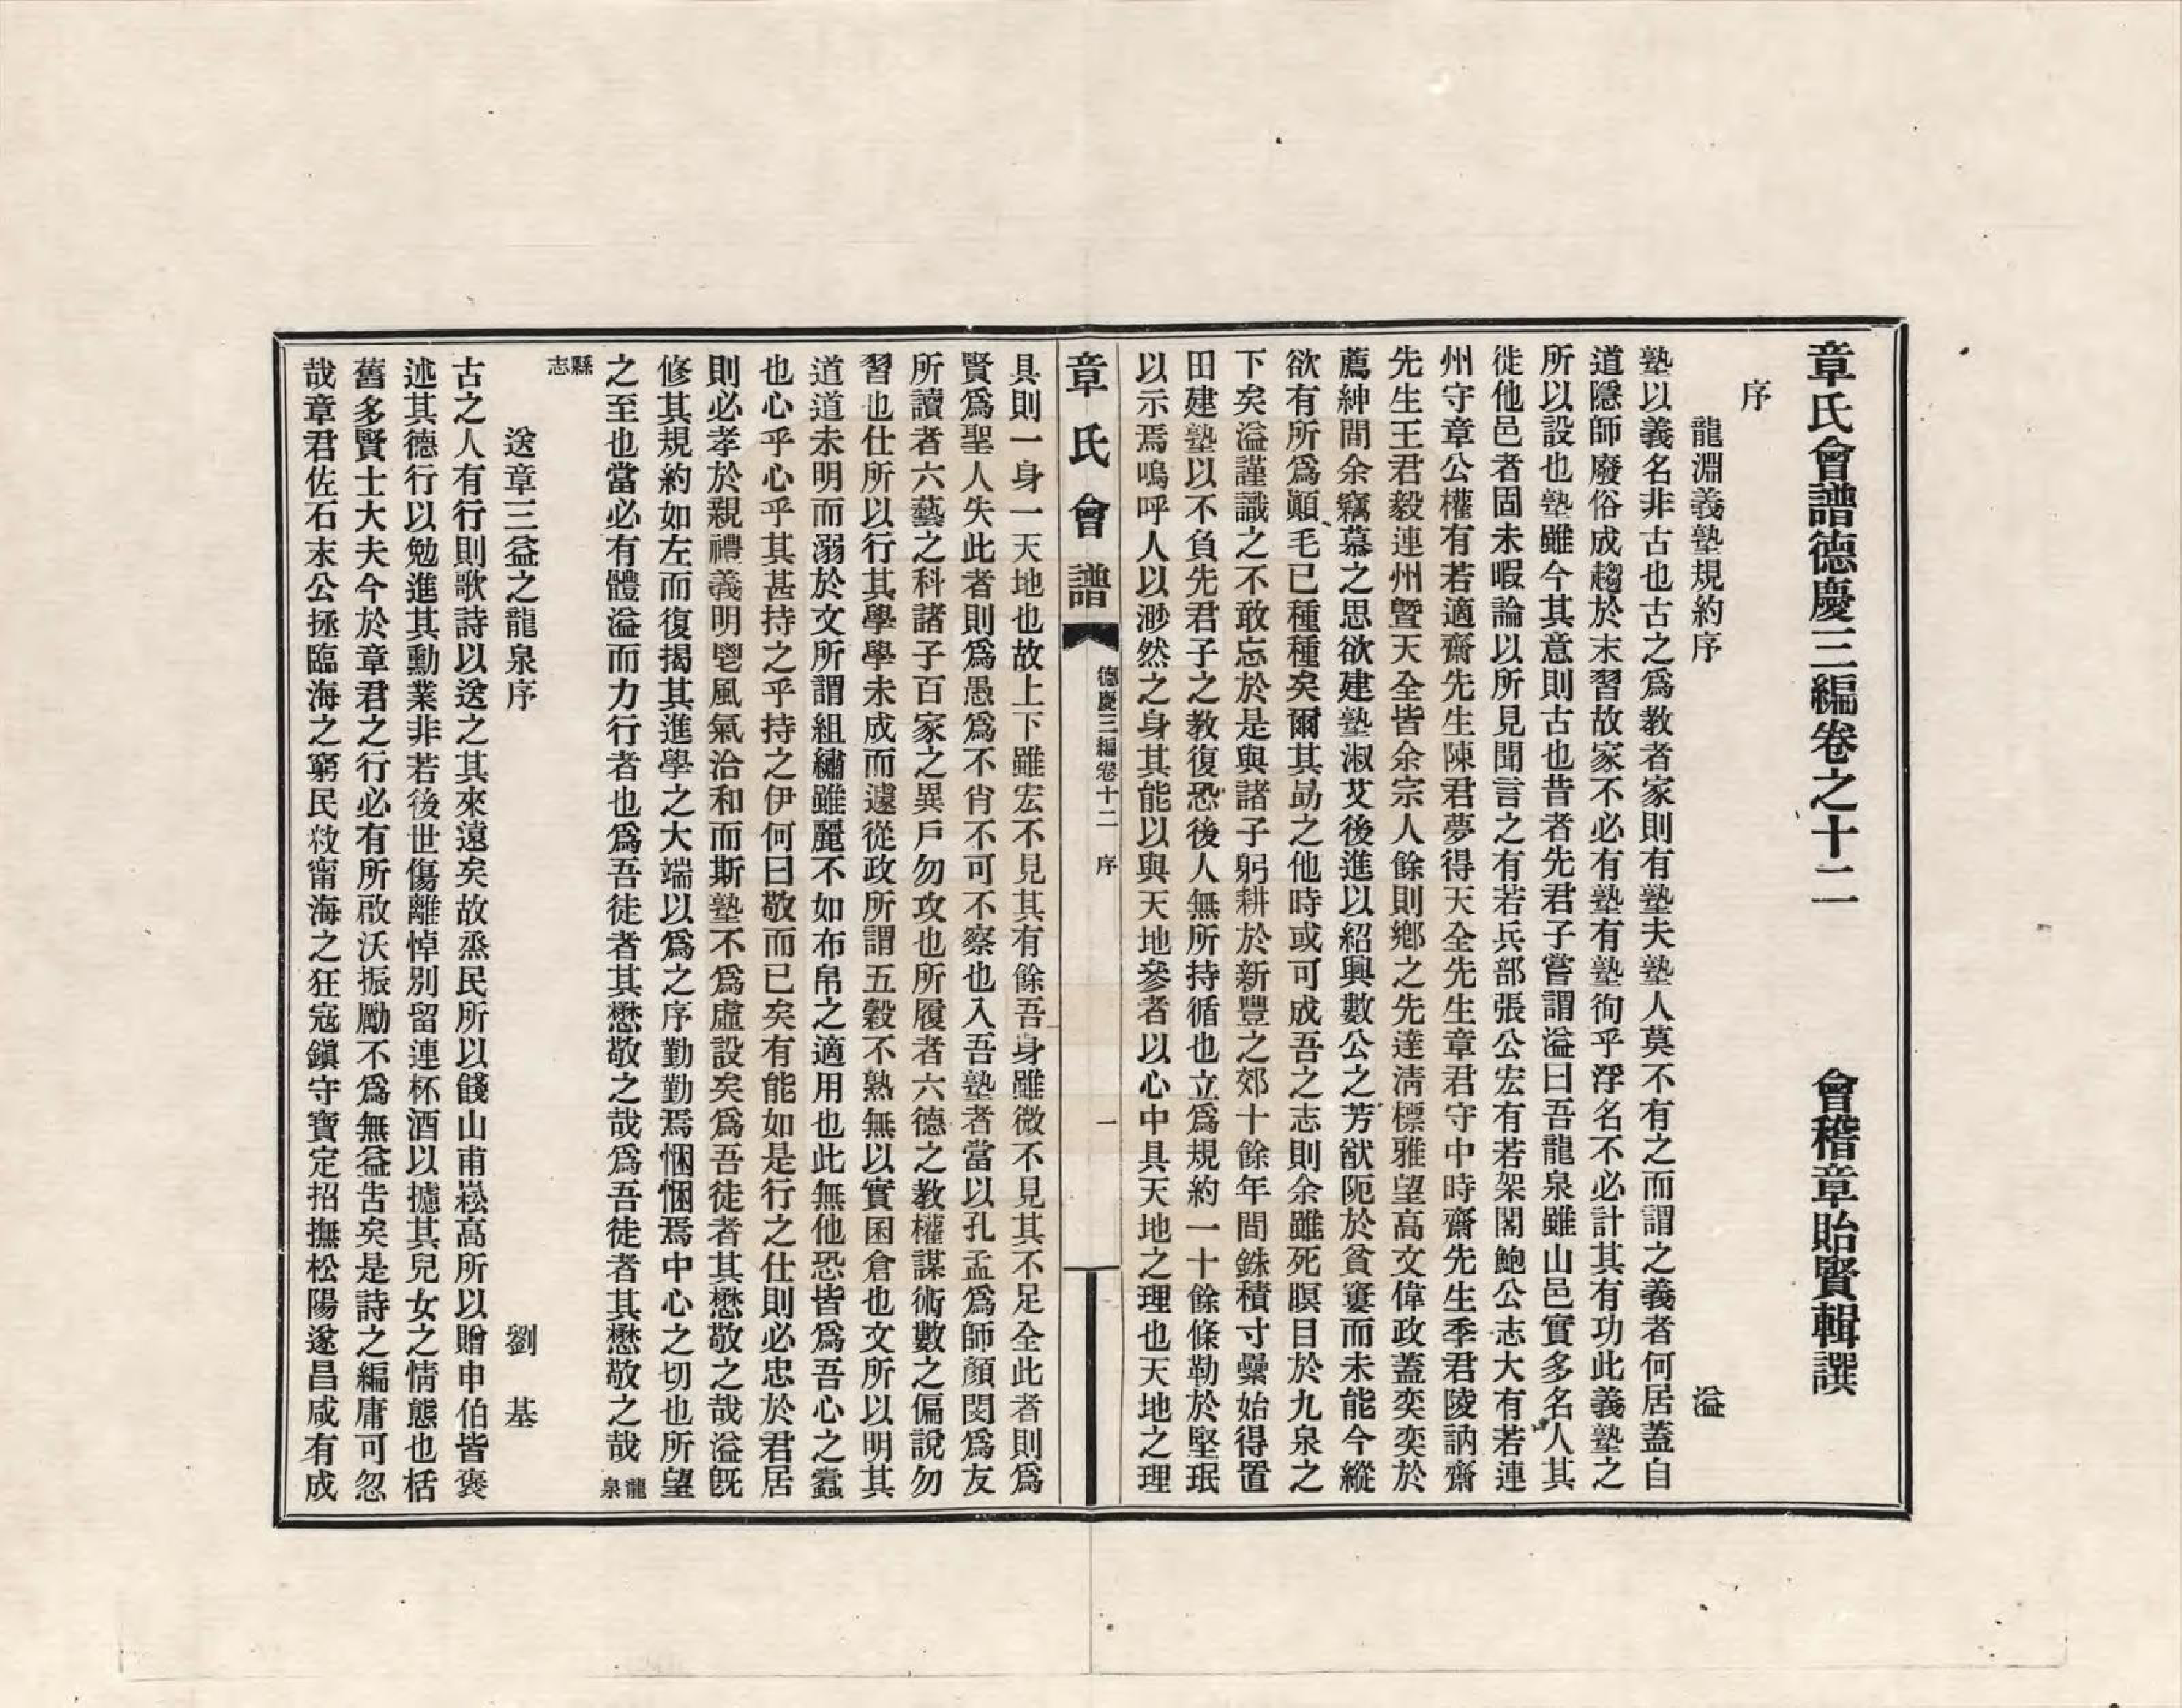 章氏會譜德慶三編卷之十二　會稽章貽賢輯譔
序
龍淵義塾規約序　溢
塾以義名非古也古之爲教者家則有塾夫塾人莫不有之而謂之義者何居蓋自
道隱師廢俗成趨於末習故家不必有塾有塾徇乎浮名不必計其有功此義塾之
所以設也塾雖今其意則古也昔者先君子嘗謂溢曰吾龍泉雖山邑實多名人其
徙他邑者固未暇論以所見聞言之有若兵部張公宏有若架閣鮑公志大有若連
州守章公權有若適齋先生陳君夢得天全先生章君守中時齋先生季君陵訥齋
先生王君毅連州曁天全皆余宗人餘則鄉之先達淸標雅望高文偉政蓋奕奕於
薦紳間余竊慕之思欲建塾淑艾後進以紹興數公之芳猷阨於貧窶而未能今縱
欲有所爲顚毛已種種矣爾其勖之他時或可成吾之志則余雖死瞑目於九泉之
下矣溢謹識之不敢忘於是與諸子躬耕於新豐之郊十餘年間銖積寸纍始得置
田建塾以不負先君子之教復恐後人無所持循也立爲規約一十餘條勒於堅珉
以示焉嗚呼人以渺然之身其能以與天地參者以心中具天地之理也天地之理
章氏會譜　德慶三編卷十二　序　一
具則一身一天地也故上下雖宏不見其有餘吾身雖微不見其不足全此者則爲
賢爲聖人失此者則爲愚爲不肖不可不察也入吾塾者當以孔孟爲師顏閔爲友
所讀者六藝之科諸子百家之異戶勿攻也所履者六德之教權謀術數之偏說勿
習也仕所以行其學學未成而遽從政所謂五穀不熟無以實囷倉也文所以明其
道道未明而溺於文所謂組繡雖麗不如布帛之適用也此無他恐皆爲吾心之蠹
也心乎心乎其甚持之乎持之伊何曰敬而已矣有能如是行之仕則必忠於君居
則必孝於親禮義明鬯風氣洽和而斯塾不爲虛設矣爲吾徒者其懋敬之哉溢旣
修其規約如左而復揭其進學之大端以爲之序勤勤焉悃悃焉中心之切也所望
之至也當必有體溢而力行者也爲吾徒者其懋敬之哉爲吾徒者其懋敬之哉龍泉
縣志
送章三益之龍泉序　劉基
古之人有行則歌詩以送之其來遠矣故烝民所以餞山甫崧高所以贈申伯皆褒
述其德行以勉進其勳業非若後世傷離悼別留連杯酒以攄其兒女之情態也栝
舊多賢士大夫今於章君之行必有所啟沃振勵不爲無益告矣是詩之編庸可忽
哉章君佐石末公拯臨海之窮民救甯海之狂寇鎭守寶定招撫松陽遂昌咸有成